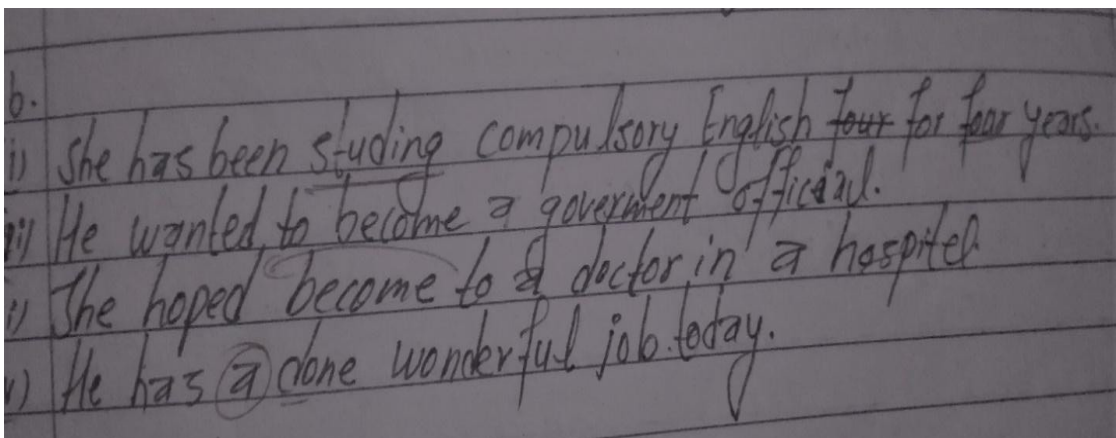 b.
i) She has been studing compulsory English four for four years.
ii) He wanted to become a goverment official.
i) She hoped become to a doctor in a hospitel.
v) He has a done wonderful job today.